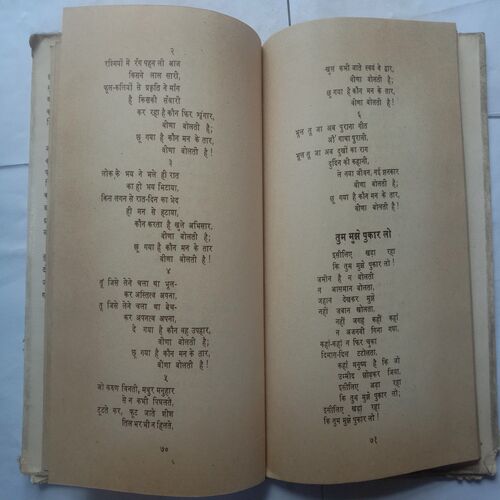 २
रश्मियों में रंग पहन ली आज
किसने लाल सारी,
फूल-कलियों से प्रकृति ने माँग
है किसकी सँवारी
कर रहा है कौन फिर शृंगार,
वीणा बोलती है;
छू गया है कौन मन के तार,
वीणा बोलती है!
३
लोक के भय ने भले ही रात
का हो भय मिटाया,
किस लगन से रात-दिन का भेद
ही मन से हटाया,
कौन करता है खुले अभिसार,
वीणा बोलती है;
छू गया है कौन मन के तार
वीणा बोलती है!
४
तू जिसे लेने चला था भूल-
कर अस्तित्व अपना,
तू जिसे लेने चला था बेच-
कर अपनत्व अपना,
दे गया है कौन वह उपहार,
वीणा बोलती है;
छू गया है कौन मन के तार,
वीणा बोलती है!
५
जो करुण विनती, मधुर मनुहार
से न कभी पिघलते,
टूटते कर, फूट जाते शीश
तिल भर भी न हिलते,
७०
खुल कभी जाते स्वयं वे द्वार,
वीणा बोलती है;
छू गया है कौन मन के तार,
वीणा बोलती है!
६
भूल तू जा अब पुराना गीत
औ' गाथा पुरानी,
भूल तू जा अब दुखों का राग
दुर्दिन की कहानी,
ले नया जीवन, नई झनकार
वीणा बोलती है;
छू गया है कौन मन के तार,
वीणा बोलती है!
तुम मुझे पुकार लो
इसीलिए खड़ा रहा
कि तुम मुझे पुकार लो!
ज़मीन है न बोलती
न आसमान बोलता,
जहान देखकर मुझे
नहीं ज़बान खोलता,
नहीं जगह कहीं जहाँ
न अजनबी गिना गया,
कहाँ-कहाँ न फिर चुका
दिमाग़-दिल टटोलता,
कहाँ मनुष्य है कि जो
उमीद छोड़कर जिया,
इसीलिए अड़ा रहा
कि तुम मुझे पुकार लो;
इसीलिए खड़ा रहा
कि तुम मुझे पुकार लो!
७१